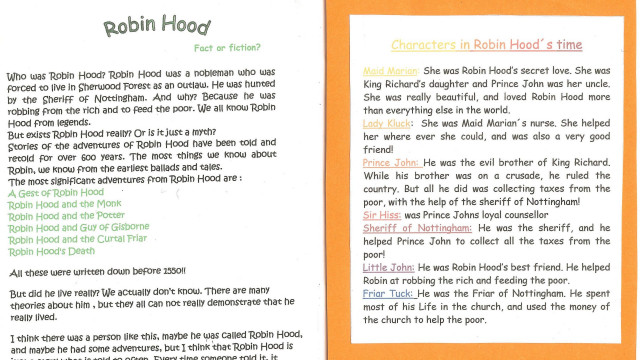 Robin Hood
Fact or fiction?
Who was Robin Hood? Robin Hood was a nobleman who was
forced to live in Sherwood Forest as an outlaw. He was hunted
by the Sheriff of Nottingham. And why? Because he was
robbing from the rich and to feed the poor. We all know Robin
Hood from legends.
But exists Robin Hood really? Or is it just a myth?
Stories of the adventures of Robin Hood have been told and
retold for over 600 years. The most things we know about
Robin, we know from the earliest ballads and tales.
The most significant adventures from Robin Hood are :
A Gest of Robin Hood
Robin Hood and the Monk
Robin Hood and the Potter
Robin Hood and Guy of Gisborne
Robin Hood and the Curtal Friar
Robin Hood's Death
All these were written down before 1550!!
But did he live really? We actually don't know. There are many
theories about him , but they all can not really demonstrate that he
really lived.
I think there was a person like this, maybe he was called Robin Hood,
and maybe he had some adventures, but I think that Robin Hood is
Characters in Robin Hood´s time
Maid Marian: She was Robin Hood's secret love. She was
King Richard's daughter and Prince John was her uncle.
She was really beautiful, and loved Robin Hood more
than everything else in the world.
Lady Kluck: She was Maid Marian´s nurse. She helped
her where ever she could, and was also a very good
friend!
Prince John: He was the evil brother of King Richard.
While his brother was on a crusade, he ruled the
country. But all he did was collecting taxes from the
poor, with the help of the sheriff of Nottingham!
Sir Hiss: was Prince Johns loyal counsellor
Sheriff of Nottingham: He was the sheriff, and he
helped Prince John to collect all the taxes from the
poor!
Little John: He was Robin Hood's best friend. He helped
Robin at robbing the rich and feeding the poor.
Friar Tuck: He was the Friar of Nottingham. He spent
most of his Life in the church, and used the money of
the church to help the poor.